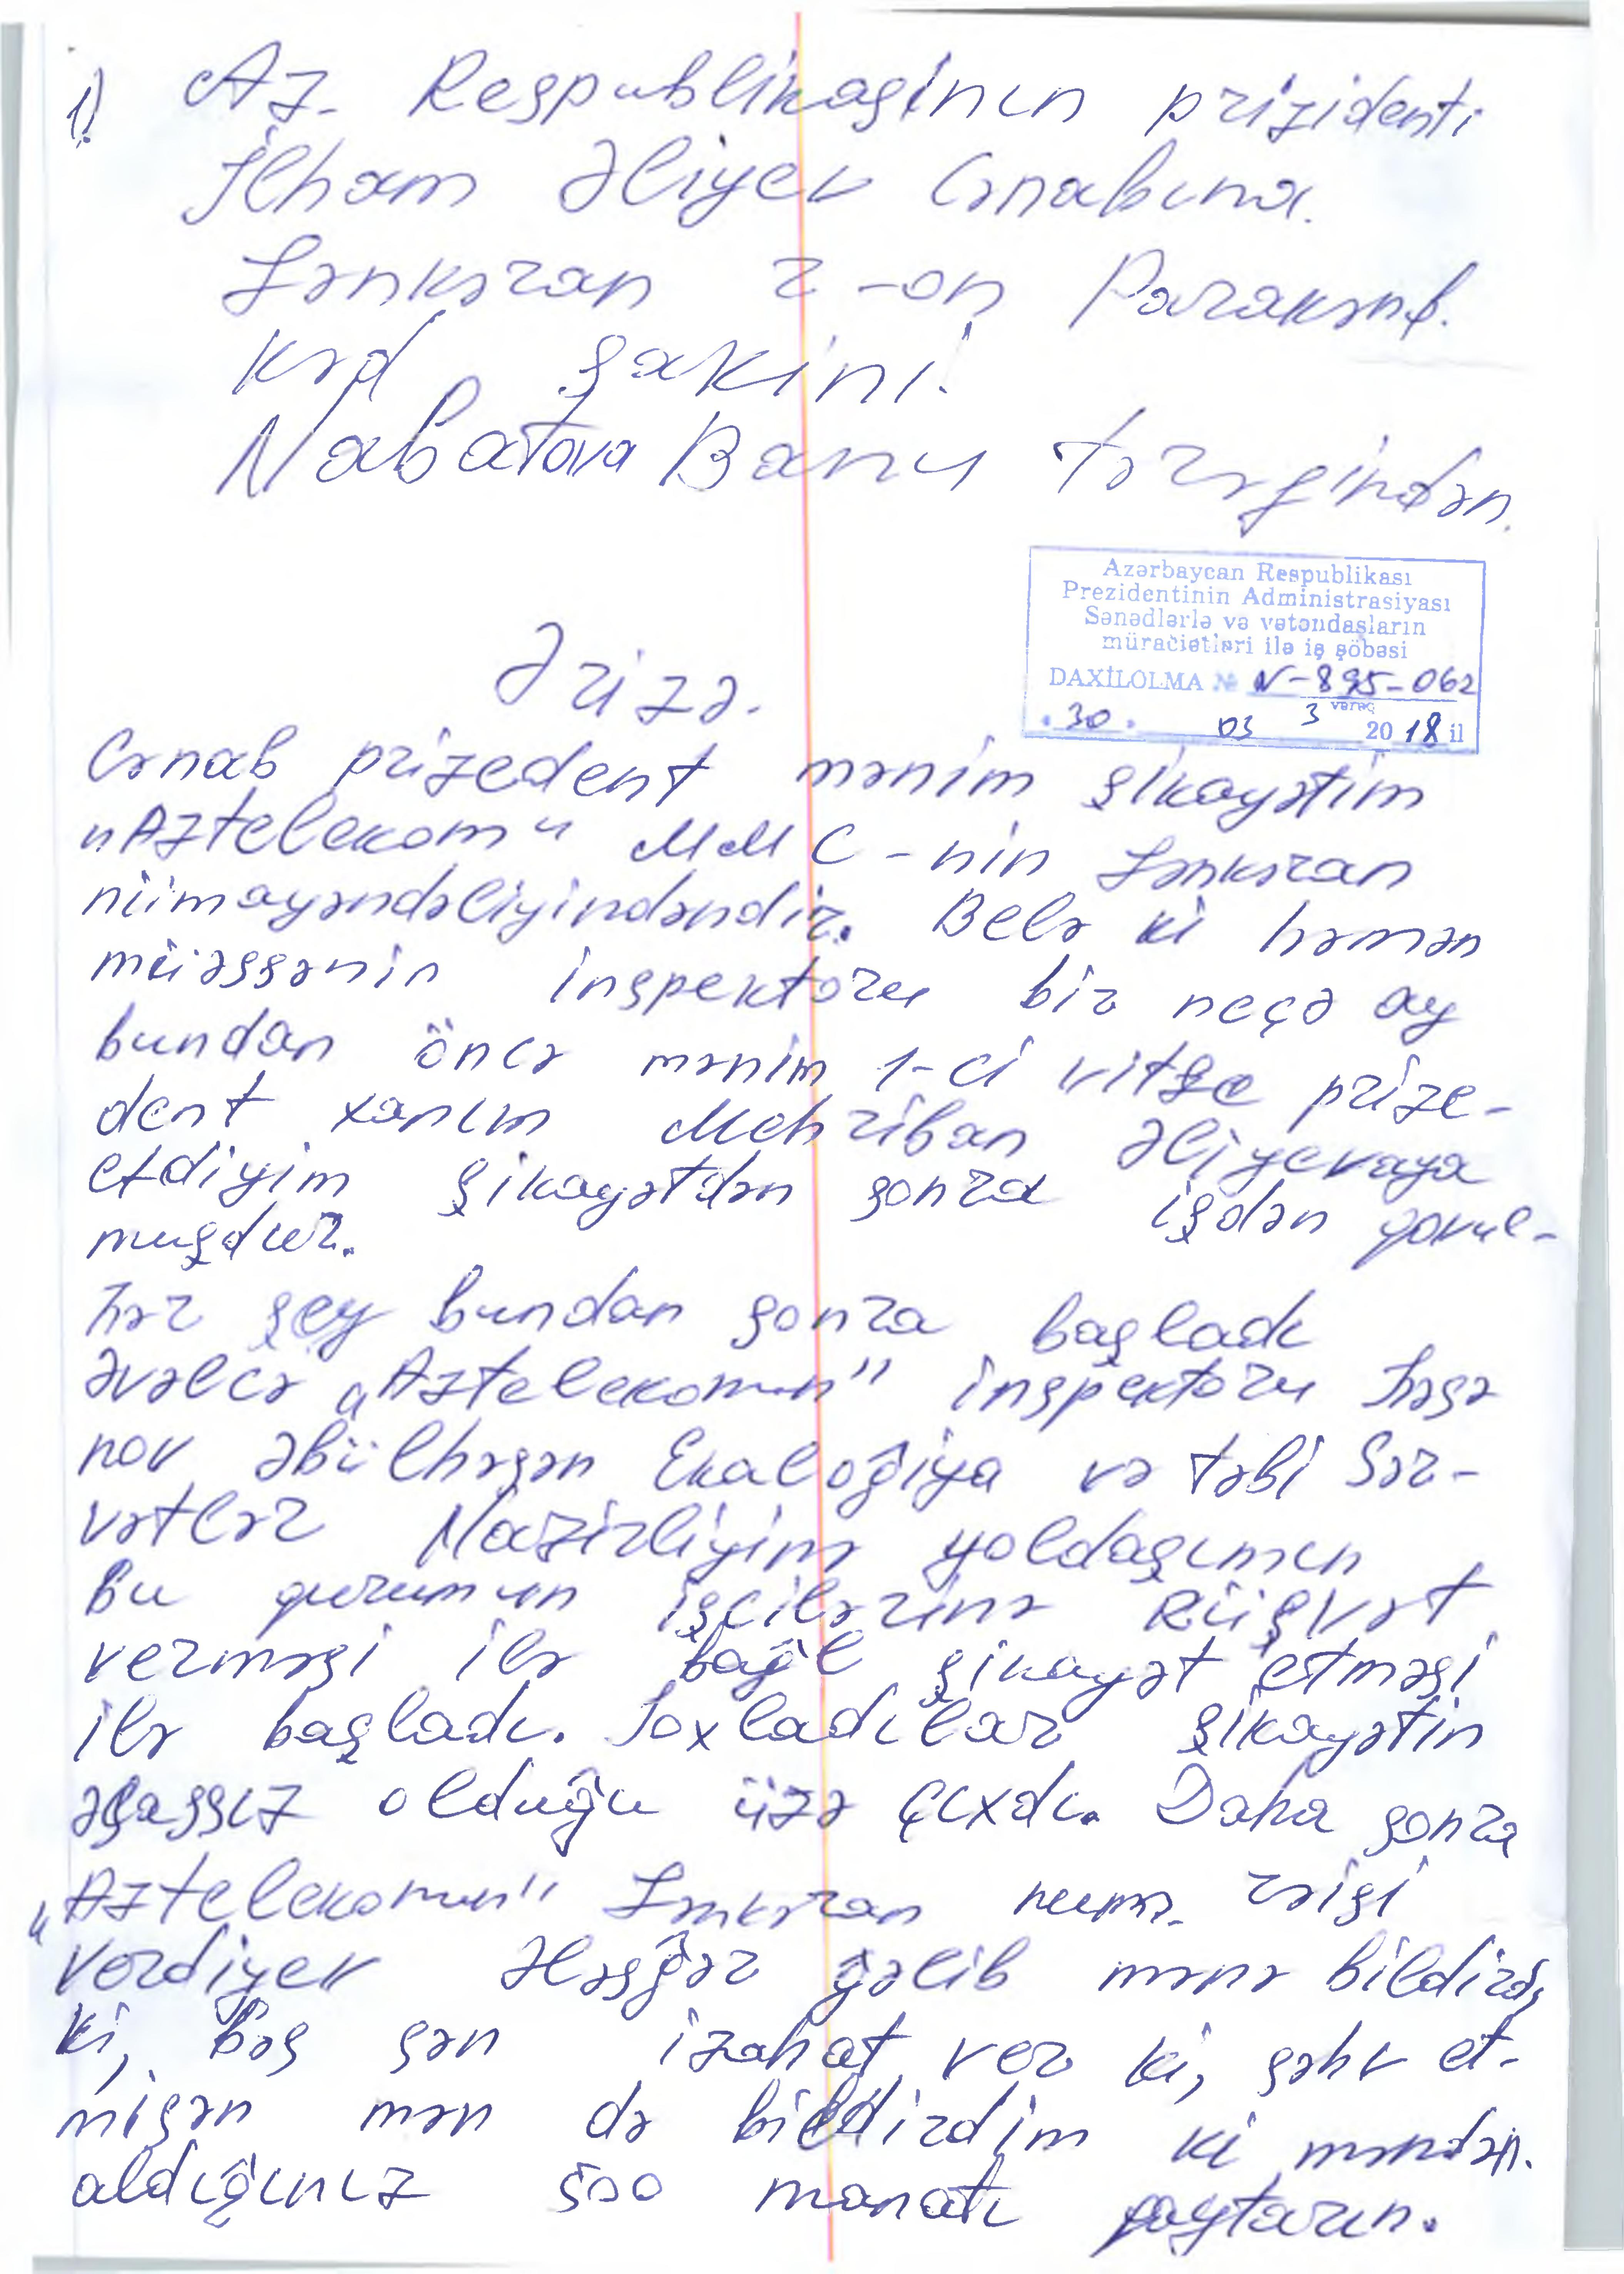 1) Az. Respublikasının prizidenti
İlham Əliyev Cənabına.
Lənkəran r-on Parakənd.
kəd sakini.
Nabatova Banu tərəfindən.
Azərbaycan Respublikası
Prezidentinin Administrasiyası
Sənədlərlə və vətəndaşların
müraciətləri ilə iş şöbəsi
DAXİLOLMA № N-895-062
3 vərəq
30. 03 2018 il
Ərizə.
Cənab prizedent mənim şikayətim
"Aztelekom" MMC-nin Lənkəran
nümayəndəliyindəndir. Belə ki həmən
müəssənin inspektoru bir neçə ay
bundan öncə mənim 1-ci vitse prize-
dent xanım Mehriban Əliyevaya
etdiyim şikayətdən sonra işdən qovul-
muşdur.
hər şey bundan sonra başladı
əvəlcə "Aztelekomun" inspektoru həsə
nov əbülhəsən Ekaloğiya və təbi Sər-
vətlər Nazirliyinə yoldaşımın
bu qurumun işçilərinə Rüşvət
verməsi ilə bağl şikayət etməsi
ilə başladı. Yoxladılar şikayətin
əsassız olduğu üzə çıxdı. Daha sonra
"Aztelekomun" Lənkəran rəisi
Verdiyev Ələsğər gəlib mənə bildirdi
ki, bəs sən izahat ver ki, səhv et-
misən mən də bildirdim ki məndən
aldığınız 500 manatı qaytarın.